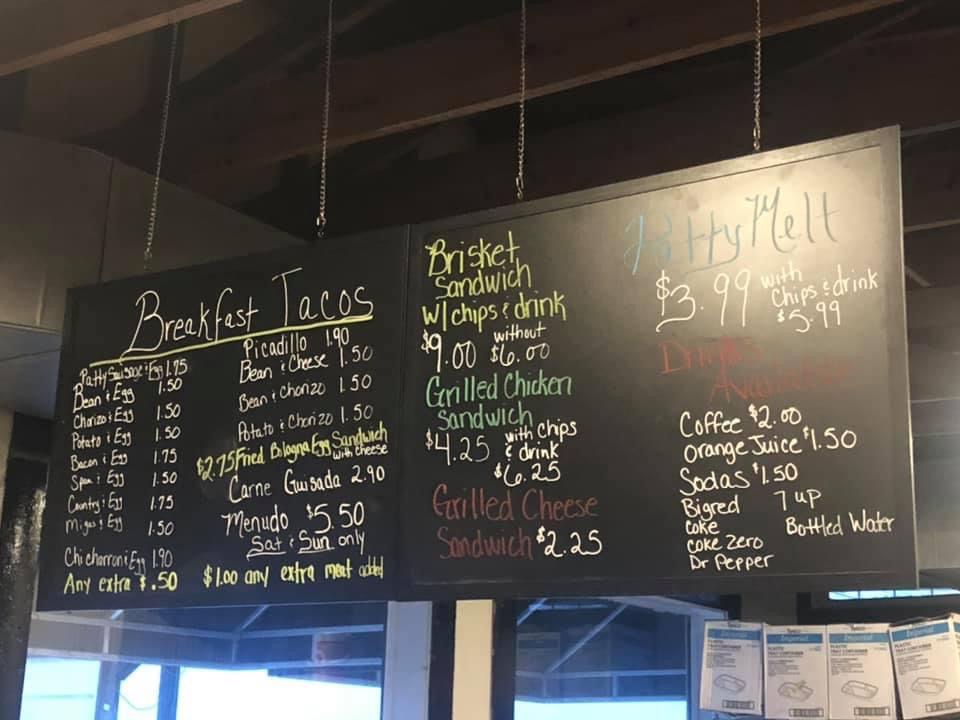 Breakfast Tacos
Patty Sausage & Egg 1.75
Bean & Egg 1.50
Chorizo & Egg 1.50
Potato & Egg 1.50
Bacon & Egg 1.75
Spam & Egg 1.50
Country & Egg 1.75
Migas & Egg 1.50
Chicharroni Egg 1.90
Any extra $.50
Picadillo 1.90
Bean & Cheese 1.50
Bean & Chorizo 1.50
Potato & Chorizo 1.50
$2.75 Fried Bologna Egg Sandwich
with cheese
Carne Guisada 2.90
Menudo $5.50
Sat & Sun only
$1.00 any extra meat added
Brisket
Sandwich
w/chips & drink
$9.00 without $6.00
Grilled Chicken
Sandwich
$4.25 with chips
& drink
$6.25
Grilled Cheese
Sandwich $2.25
Patty Melt
$3.99 with
chips & drink
$5.99
Drinks
Available
Coffee $2.00
Orange Juice $1.50
Sodas $1.50
Bigred 7up
Coke Bottled Water
Coke Zero
Dr Pepper
Imperial
PLASTIC
TRAY CONTAINER
Imperial
PLASTIC
TRAY CONTAINER
Imperial
PLASTIC
TRAY CONTAINER
Imperial
PLASTIC
TRAY CONTAINER